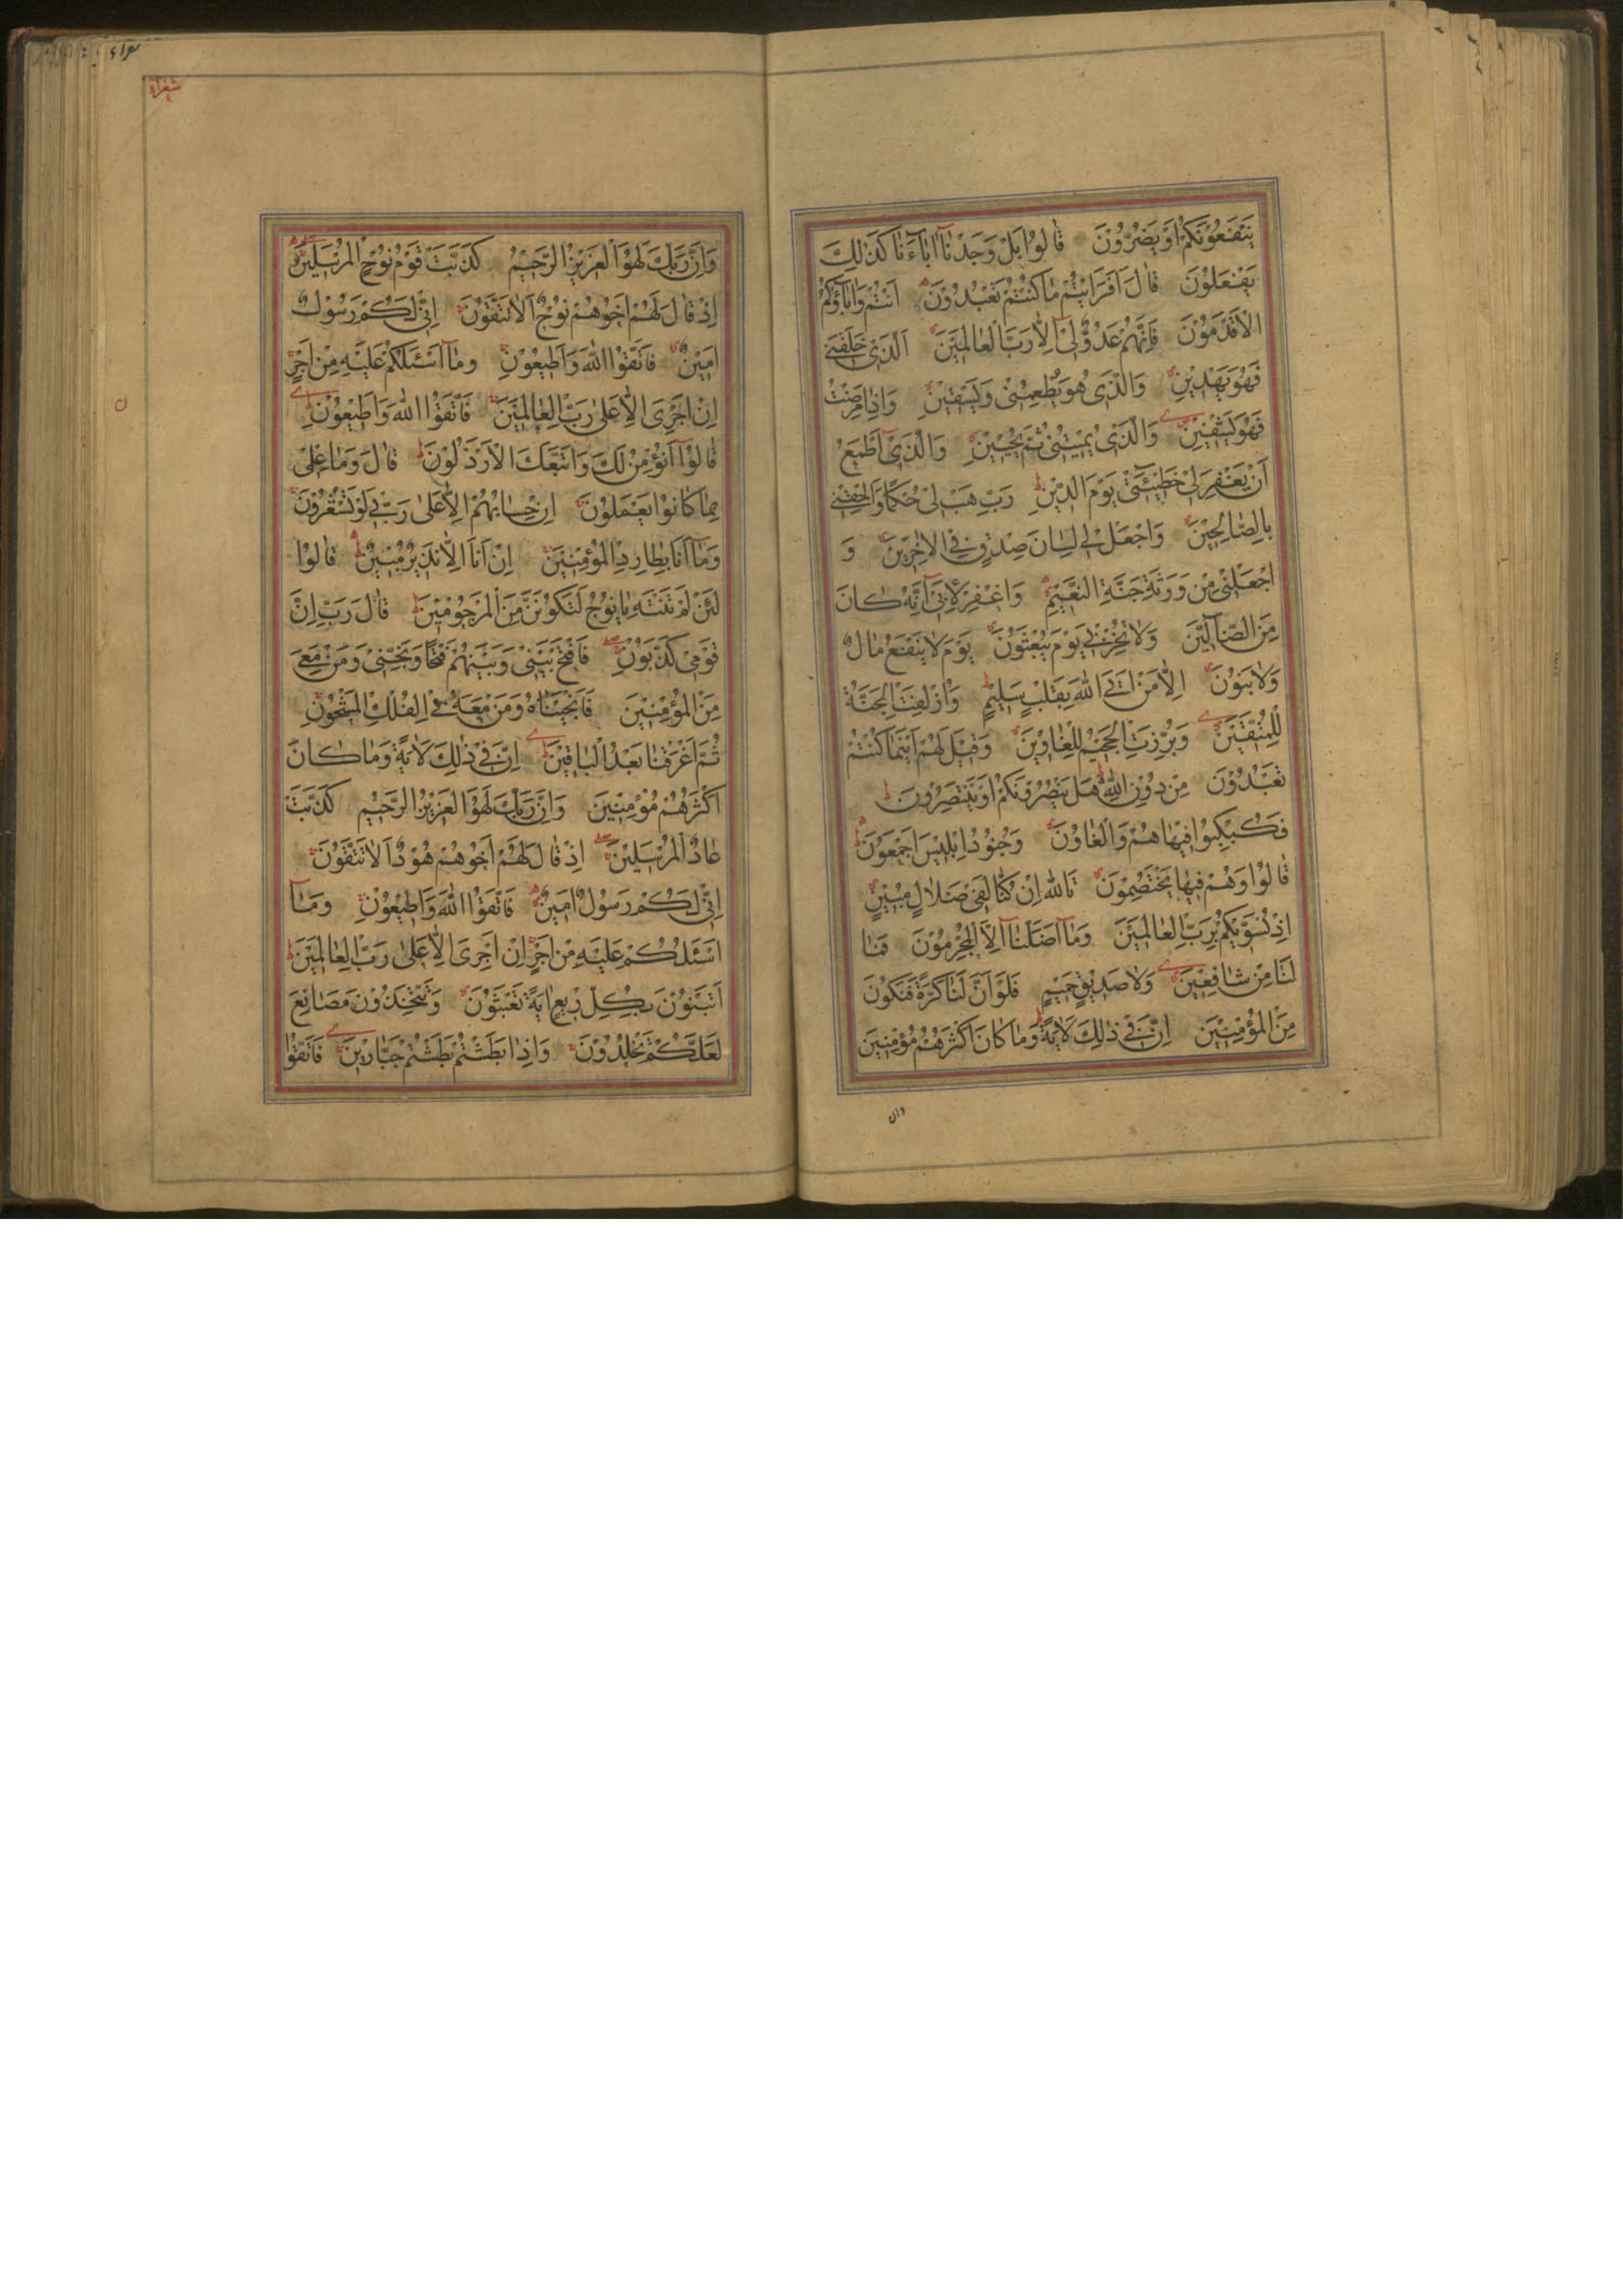 يَنْفَعُوْنَكُمْ اَوْ يَضُرُّوْنَ قٰالُوْا بَلْ وَجَدْنٰآ اٰبٰآءَنٰا كَذٰلِكَ
يَفْعَلُوْنَ قٰالَ اَفَرَاَيْتُمْ مٰا كُنْتُمْ تَعْبُدُوْنَ اَنْتُمْ وَاٰبٰآؤُكُمُ
الْاَقْدَمُوْنَ فَاِنَّهُمْ عَدُوٌّ لِيْ اِلّٰا رَبَّ الْعٰالَمِيْنَ اَلَّذِيْ خَلَقَنِيْ
فَهُوَ يَهْدِيْنِ وَالَّذِيْ هُوَ يُطْعِمُنِيْ وَيَسْقِيْنِ وَاِذٰا مَرِضْتُ
فَهُوَ يَشْفِيْنِ وَالَّذِيْ يُمِيْتُنِيْ ثُمَّ يُحْيِيْنِ وَالَّذِيْٓ اَطْمَعُ
اَنْ يَغْفِرَ لِيْ خَطِيْٓئَتِيْ يَوْمَ الدِّيْنِ رَبِّ هَبْ لِيْ حُكْمًا وَاَلْحِقْنِيْ
بِالصّٰالِحِيْنَ وَاجْعَلْ لِيْ لِسٰانَ صِدْقٍ فِي الْاٰخِرِيْنَ وَ
اجْعَلْنِيْ مِنْ وَرَثَةِ جَنَّةِ النَّعِيْمِ وَاغْفِرْ لِاَبِيْٓ اِنَّهُ كٰانَ
مِنَ الضّٰآلِّيْنَ وَلٰا تُخْزِنِيْ يَوْمَ يُبْعَثُوْنَ يَوْمَ لٰا يَنْفَعُ مٰالٌ
وَلٰا بَنُوْنَ اِلّٰا مَنْ اَتَى اللّٰهَ بِقَلْبٍ سَلِيْمٍ وَاُزْلِفَتِ الْجَنَّةُ
لِلْمُتَّقِيْنَ وَبُرِّزَتِ الْجَحِيْمُ لِلْغٰاوِيْنَ وَقِيْلَ لَهُمْ اَيْنَمٰا كُنْتُمْ
تَعْبُدُوْنَ مِنْ دُوْنِ اللّٰهِ هَلْ يَنْصُرُوْنَكُمْ اَوْ يَنْتَصِرُوْنَ
فَكُبْكِبُوْا فِيْهٰا هُمْ وَالْغٰاوُنَ وَجُنُوْدُ اِبْلِيْسَ اَجْمَعُوْنَ
قٰالُوْا وَهُمْ فِيْهٰا يَخْتَصِمُوْنَ تَاللّٰهِ اِنْ كُنّٰا لَفِيْ ضَلٰالٍ مُبِيْنٍ
اِذْ نُسَوِّيْكُمْ بِرَبِّ الْعٰالَمِيْنَ وَمٰآ اَضَلَّنٰآ اِلَّا الْمُجْرِمُوْنَ فَمٰا
لَنٰا مِنْ شٰافِعِيْنَ وَلٰا صَدِيْقٍ حَمِيْمٍ فَلَوْ اَنَّ لَنٰا كَرَّةً فَنَكُوْنَ
مِنَ الْمُؤْمِنِيْنَ اِنَّ فِيْ ذٰلِكَ لَاٰيَةً وَمٰا كٰانَ اَكْثَرُهُمْ مُؤْمِنِيْنَ
وان
شعرآء
وَاِنَّ رَبَّكَ لَهُوَ الْعَزِيْزُ الرَّحِيْمُ كَذَّبَتْ قَوْمُ نُوْحٍ الْمُرْسَلِيْنَ
اِذْ قٰالَ لَهُمْ اَخُوْهُمْ نُوْحٌ اَلٰا تَتَّقُوْنَ اِنِّيْ لَكُمْ رَسُوْلٌ
اَمِيْنٌ فَاتَّقُوا اللّٰهَ وَاَطِيْعُوْنِ وَمٰآ اَسْئَلُكُمْ عَلَيْهِ مِنْ اَجْرٍ
اِنْ اَجْرِيَ اِلّٰا عَلٰى رَبِّ الْعٰالَمِيْنَ فَاتَّقُوا اللّٰهَ وَاَطِيْعُوْنِ
قٰالُوْٓا اَنُؤْمِنُ لَكَ وَاتَّبَعَكَ الْاَرْذَلُوْنَ قٰالَ وَمٰا عِلْمِيْ
بِمٰا كٰانُوْا يَعْمَلُوْنَ اِنْ حِسٰابُهُمْ اِلّٰا عَلٰى رَبِّيْ لَوْ تَشْعُرُوْنَ
وَمٰآ اَنَا بِطٰارِدِ الْمُؤْمِنِيْنَ اِنْ اَنَا اِلّٰا نَذِيْرٌ مُبِيْنٌ قٰالُوْا
لَئِنْ لَمْ تَنْتَهِ يٰا نُوْحُ لَتَكُوْنَنَّ مِنَ الْمَرْجُوْمِيْنَ قٰالَ رَبِّ اِنَّ
قَوْمِيْ كَذَّبُوْنِ فَافْتَحْ بَيْنِيْ وَبَيْنَهُمْ فَتْحًا وَنَجِّنِيْ وَمَنْ مَعِيَ
مِنَ الْمُؤْمِنِيْنَ فَاَنْجَيْنٰاهُ وَمَنْ مَعَهُ فِي الْفُلْكِ الْمَشْحُوْنِ
ثُمَّ اَغْرَقْنٰا بَعْدُ الْبٰاقِيْنَ اِنَّ فِيْ ذٰلِكَ لَاٰيَةً وَمٰا كٰانَ
اَكْثَرُهُمْ مُؤْمِنِيْنَ وَاِنَّ رَبَّكَ لَهُوَ الْعَزِيْزُ الرَّحِيْمُ كَذَّبَتْ
عٰادٌ الْمُرْسَلِيْنَ اِذْ قٰالَ لَهُمْ اَخُوْهُمْ هُوْدٌ اَلٰا تَتَّقُوْنَ
اِنِّيْ لَكُمْ رَسُوْلٌ اَمِيْنٌ فَاتَّقُوا اللّٰهَ وَاَطِيْعُوْنِ وَمٰآ
اَسْئَلُكُمْ عَلَيْهِ مِنْ اَجْرٍ اِنْ اَجْرِيَ اِلّٰا عَلٰى رَبِّ الْعٰالَمِيْنَ
اَتَبْنُوْنَ بِكُلِّ رِيْعٍ اٰيَةً تَعْبَثُوْنَ وَتَتَّخِذُوْنَ مَصٰانِعَ
لَعَلَّكُمْ تَخْلُدُوْنَ وَاِذٰا بَطَشْتُمْ بَطَشْتُمْ جَبّٰارِيْنَ فَاتَّقُوا